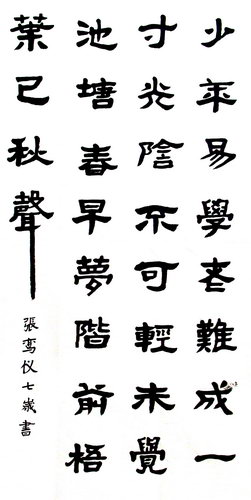 少年易學老難成一
寸光陰不可輕未覺
池塘春早夢階前梧
葉已秋聲
張鸾仪七歲書